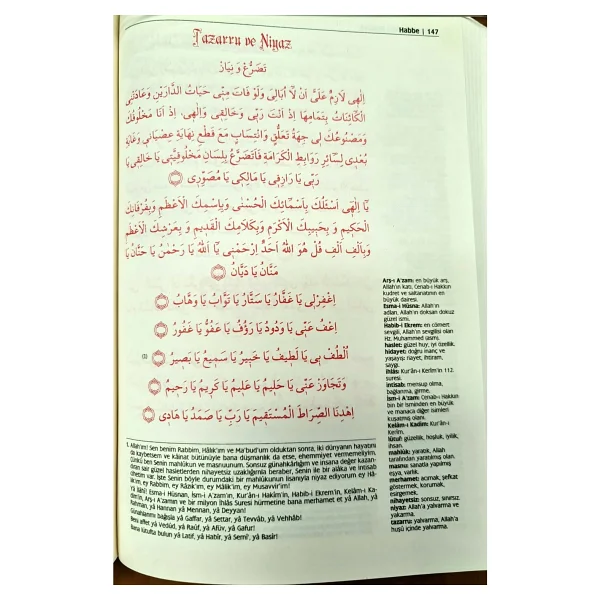 Habbe | 147
Tazarru ve Niyaz
تَضَرُّعْ وَ نِيَازْ
اِلٰهِى لَازِمٌ عَلَىَّ اَنْ لَا اُبَالِىَ وَلَوْ فَاتَ مِنِّى حَيَاتُ الدَّارَيْنِ وَعَادَتْنِى
الْكَائِنَاتُ بِتَمَامِهَا اِذْ اَنْتَ رَبِّى وَخَالِقِى وَاِلٰهِى، اِذْ اَنَا مَخْلُوقُكَ
وَمَصْنُوعُكَ لِى جِهَةُ تَعَلُّقٍ وَانْتِسَابٍ مَعَ قَطْعِ نِهَايَةِ عِصْيَانِى وَغَايَةِ
بُعْدِى لِسَائِرِ رَوَابِطِ الْكَرَامَةِ فَاَتَضَرَّعُ بِلِسَانِ مَخْلُوقِيَّتِى يَا خَالِقِى يَا
رَبِّى يَا رَازِقِى يَا مَالِكِى يَا مُصَوِّرِى
يَا اِلٰهِى اَسْئَلُكَ بِاَسْمَائِكَ الْحُسْنٰى وَبِاِسْمِكَ الْاَعْظَمِ وَبِفُرْقَانِكَ
الْحَكِيمِ وَ بِحَبِيبِكَ الْاَكْرَمِ وَبِكَلَامِكَ الْقَدِيمِ وَ بِعَرْشِكَ الْاَعْظَمِ
وَبِاَلْفِ اَلْفِ قُلْ هُوَ اللّٰهُ اَحَدٌ اِرْحَمْنِى يَا اَللّٰهُ يَا رَحْمٰنُ يَا حَنَّانُ يَا
مَنَّانُ يَا دَيَّانُ
اِغْفِرْلِى يَا غَفَّارُ يَا سَتَّارُ يَا تَوَّابُ يَا وَهَّابُ
اِعْفُ عَنِّى يَا وَدُودُ يَا رَؤُفُ يَا عَفُوُّ يَا غَفُورُ
(1) اُلْطُفْ بِى يَا لَطِيفُ يَا خَبِيرُ يَا سَمِيعُ يَا بَصِيرُ
وَتَجَاوَزْ عَنِّى يَا حَلِيمُ يَا عَلِيمُ يَا كَرِيمُ يَا رَحِيمُ
اِهْدِنَا الصِّرَاطَ الْمُسْتَقِيمَ يَا رَبِّ يَا صَمَدُ يَا هَادِى
1. Allah'ım! Sen benim Rabbim, Hâlık'ım ve Ma'bud'um olduktan sonra, iki dünyanın hayatını
da kaybetsem ve kâinat bütünüyle bana düşmanlık da etse, ehemmiyet vermemeliyim.
Çünkü ben Senin mahlûkun ve masnuunum. Sonsuz günahkârlığım ve insana değer kazan-
dıran sair güzel hasletlerden nihayetsiz uzaklığımla beraber, Senin ile bir alâka ve intisab
cihetim var. İşte Senin böyle durumdaki bir mahlûkunun lisanıyla niyaz ediyorum ey Hâ-
lık'im, ey Rabbim, ey Râzık'ım, ey Mâlik'im, ey Musavvir'im!
Yâ İlâhî! Esma-i Hüsnan, İsm-i A'zam'ın, Kur'ân-ı Hakîm'in, Habib-i Ekrem'in, Kelâm-ı Ka-
dîm'in, Arş-ı A'zam'ın ve bir milyon İhlâs Suresi hürmetine bana merhamet et yâ Allah, yâ
Rahman, yâ Hannan yâ Mennan, yâ Deyyan!
Günahlarımı bağışla yâ Gaffar, yâ Settar, yâ Tevvâb, yâ Vehhâb!
Beni affet yâ Vedûd, yâ Raûf, yâ Afüv, yâ Gafur!
Bana lütufta bulun yâ Latif, yâ Habîr, yâ Semî', yâ Basîr!
Arş-ı A'zam: en büyük arş,
Allah'ın katı, Cenab-ı Hakkın
kudret ve saltanatının en
büyük dairesi.
Esma-i Hüsna: Allah'ın
adları, Allah'ın doksan dokuz
güzel ismi.
Habib-i Ekrem: en cömert
sevgili, Allah'ın sevgilisi olan
Hz. Muhammed (asm).
haslet: güzel huy, iyi özellik.
hidayet: doğru inanç ve
yaşayış; riayet, ihtiram,
saygı.
ihlâs: Kur'ân-ı Kerîm'in 112.
suresi.
intisab: mensup olma,
bağlanma, girme.
İsm-i A'zam: Cenab-ı Hakkın
bin bir isminden en büyük
ve manaca diğer isimleri
kuşatmış olanı.
Kelâm-ı Kadîm: Kur'ân-ı
Kerîm.
lütuf: güzellik, hoşluk, iyilik,
ihsan.
mahlûk: yaratık, Allah
tarafından yaratılmış olan.
masnu: sanatla yapılmış
eşya, varlık.
merhamet: acımak, şefkat
göstermek, korumak,
esirgemek.
nihayetsiz: sonsuz, sınırsız.
niyaz: Allah'a yalvarma ve
yakarma.
tazarru: yalvarma, Allah'a
huşû içinde yalvarma.